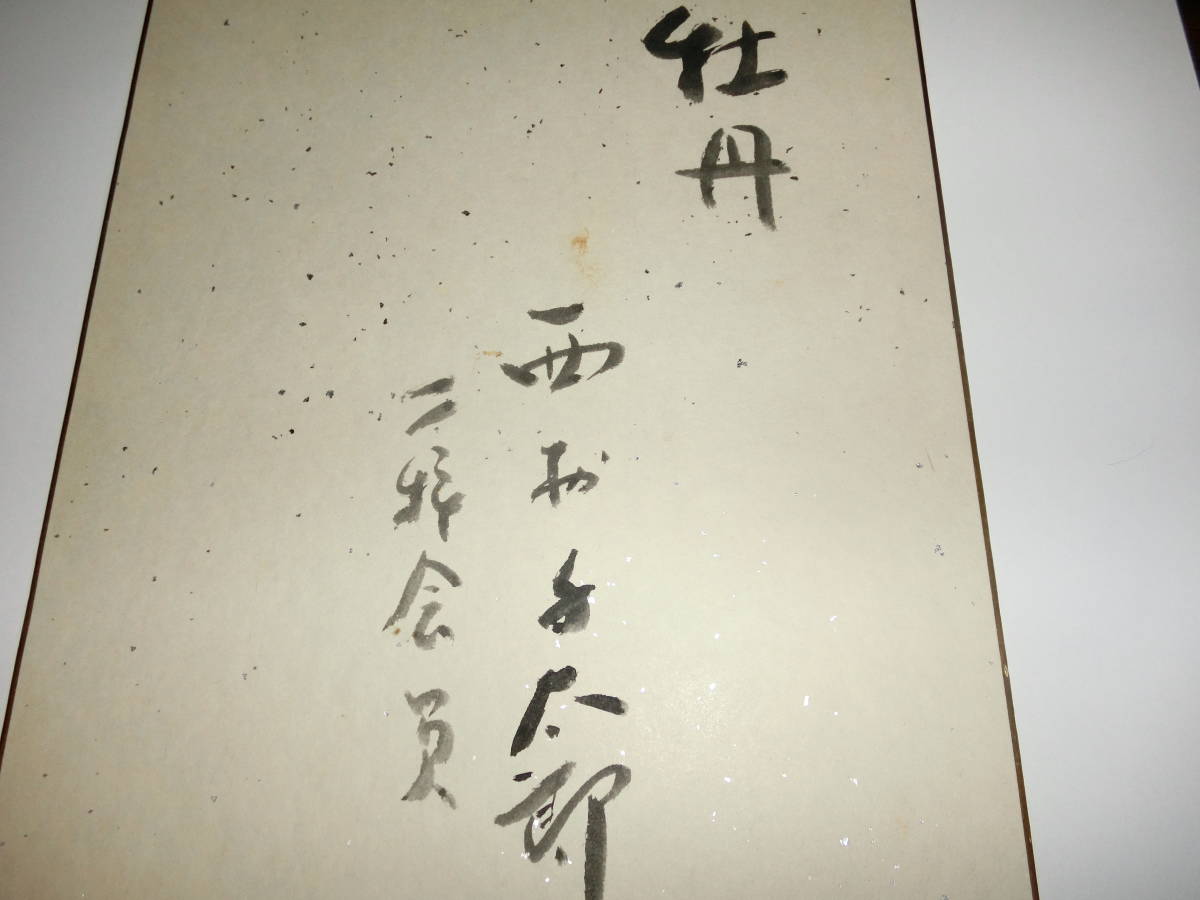 牡丹
西村千太郎
二科会員